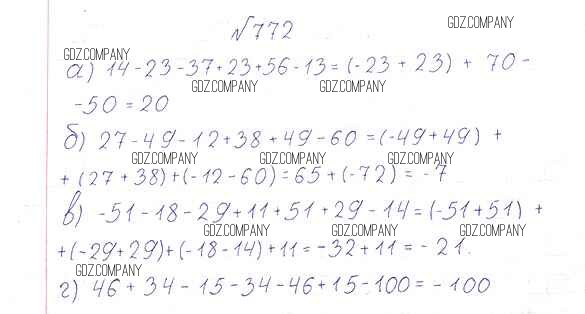 №772
GDZ.COMPANY
GDZ.COMPANY
а) 14-23-37+23+56-13=(-23+23)+ 70-
GDZ.COMPANY GDZ.COMPANY
-50=20
б) 27-49-12+38+49-60=(-49+49) +
GDZ.COMPANY GDZ.COMPANY GDZ.COMPANY
+(27+38)+(-12-60)=65+(-72)= -7
в) -51-18-29+11+51+29-14=(-51+51) +
GDZ.COMPANY GDZ.COMPANY GDZ.COMPANY
+(-29+29)+(-18-14)+11=-32+11=-21.
GDZ.COMPANY
г) 46+34-15-34-46+15-100=-100